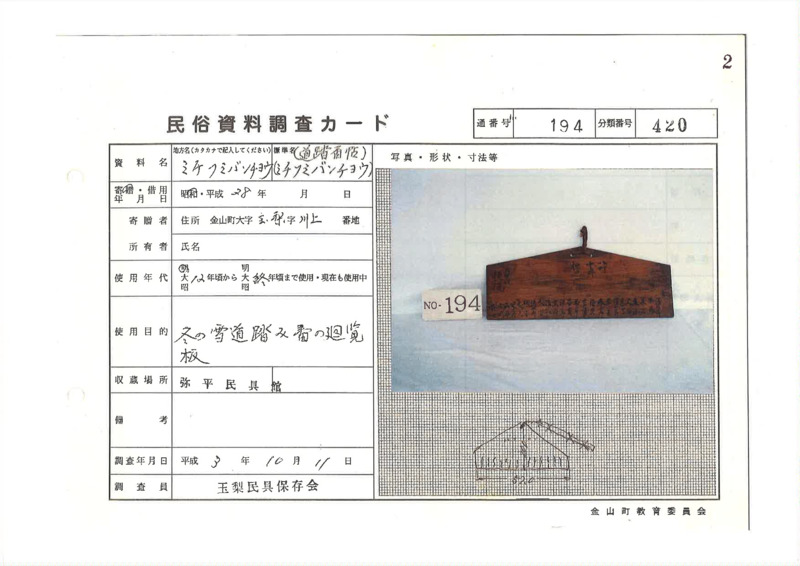 2
民俗資料調査カード
通番号 194 分類番号 420
資料名
地方名(カタカナで記入してください)
ミチフミバンチョウ
標準名(道踏番帳)
(ミチフミバンチョウ)
写真・形状・寸法等
寄贈・借用
年月日
昭和・平成 28年 月 日
寄贈者
住所 金山町大字玉梨字川上 番地
所有者
氏名
使用年代
明
大 12年頃から
昭
明
大 終年頃まで使用・現在も使用中
昭
使用目的
冬の雪道踏み番の廻覧
板
収蔵場所
弥平民具館
備考
調査年月日
平成 3 年 10 月 11 日
調査員
玉梨民具保存会
NO-194
57.0
金山町教育委員会